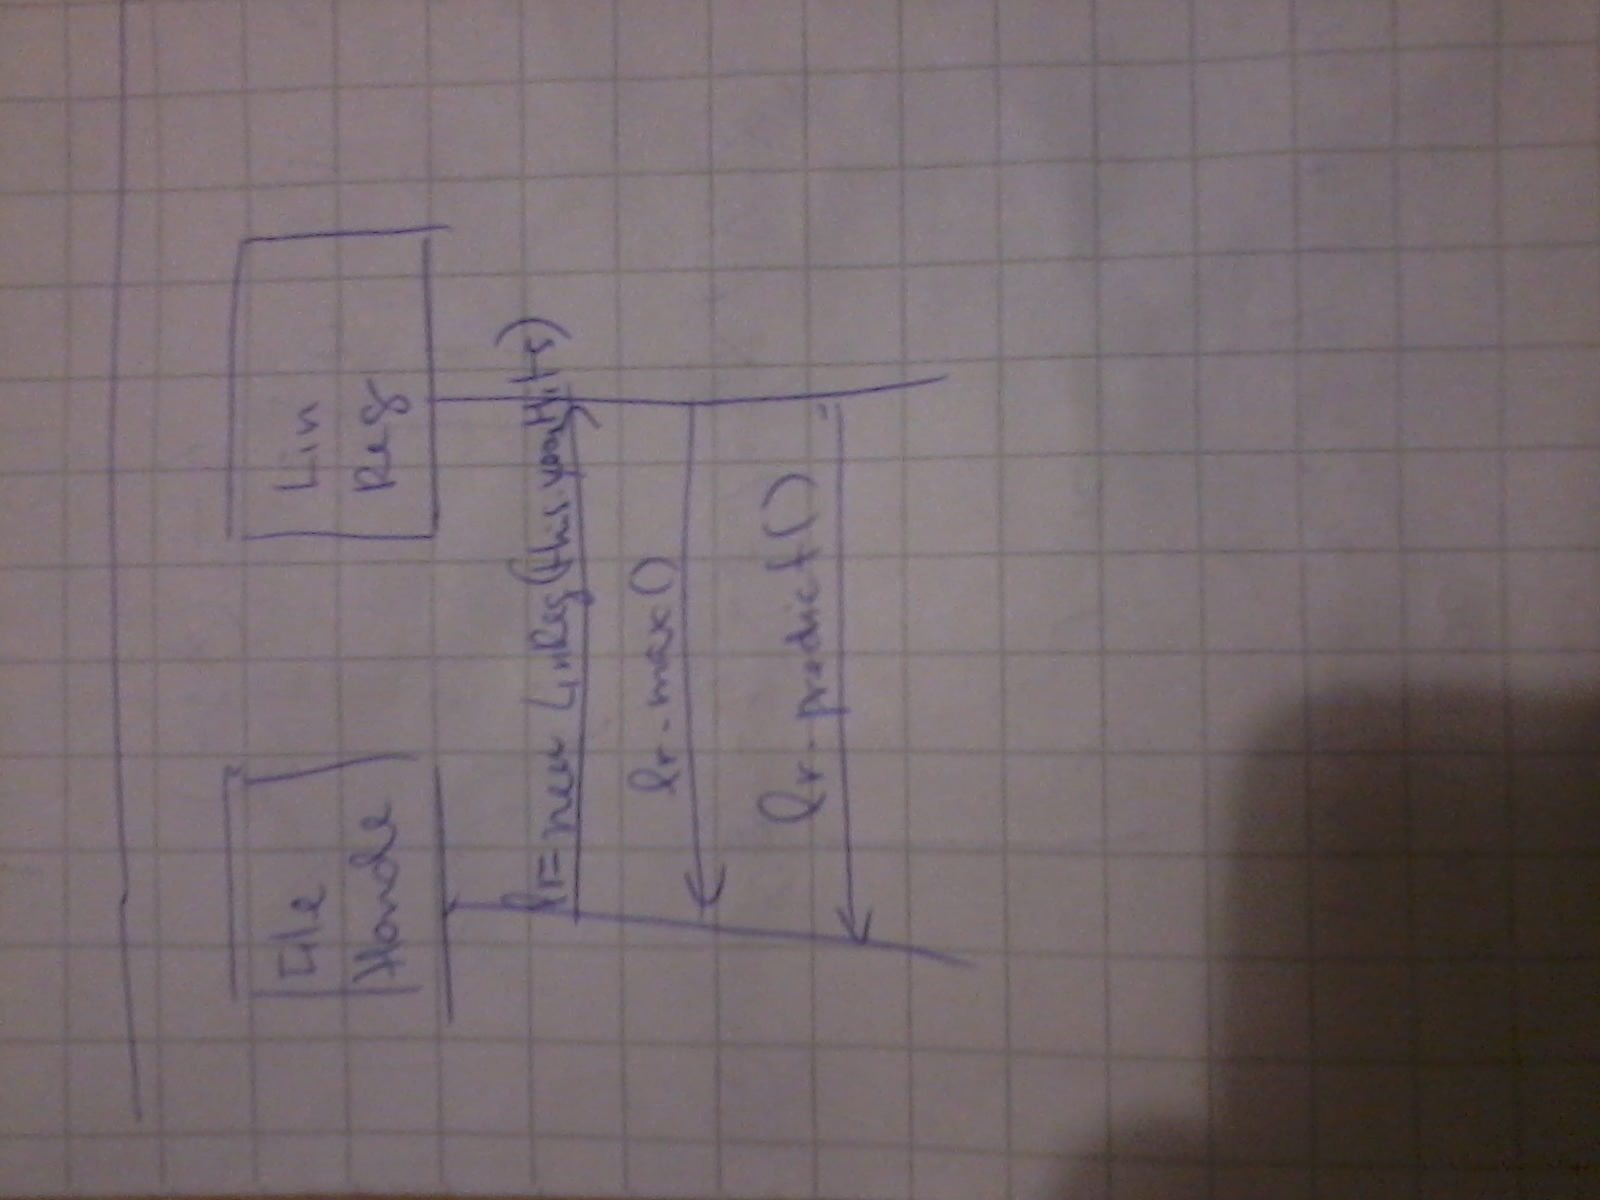 File
Hande
Lin
Reg
lr=new LinReg(this.yearHits)
lr.max()
lr.predict()